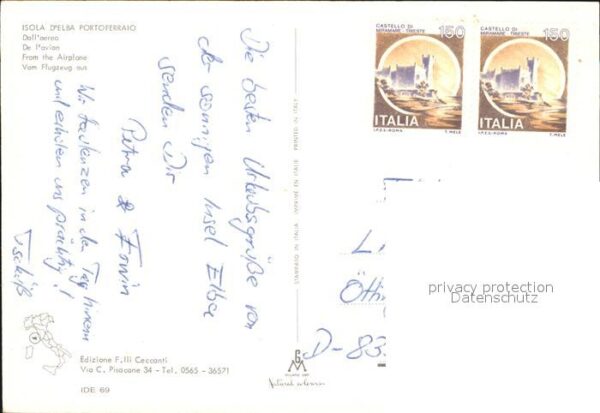 ISOLA D'ELBA PORTOFERRAIO
Dall'aereo
De l'avion
From the Airplane
Vom Flugzeug aus
Die besten Urlaubsgrüße von
der sonnigen Insel Elba
senden Dir
Petra & Erwin
Wir faulenzen in den Tag hinein
und erholen uns prächtig!
Tschüß
STAMPATO IN ITALIA - IMPRIMÉ EN ITALIE - PRINTED IN ITALY
CASTELLO DI
MIRAMARE · TRIESTE
150
ITALIA
I.P.Z.S.-ROMA T. MELE
CASTELLO DI
MIRAMARE · TRIESTE
150
ITALIA
I.P.Z.S.-ROMA T. MELE
L
Ötti
D-83
privacy protection
Datenschutz
Edizione F.lli Ceccanti
Via C. Pisacane 34 - Tel. 0565 - 36571
IDE 69
GM